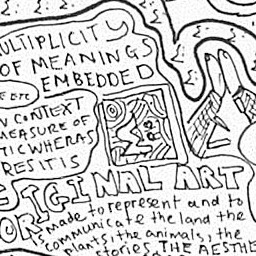 MULTIPLICITY
OF MEANINGS
EMBEDDED
ETC
CONTEXT
MEASURE OF
WHERAS
RESITIS
ORIGINAL ART
is made to represent and to
communicate the land the
plants, the animals, the
stories, THE AESTHE